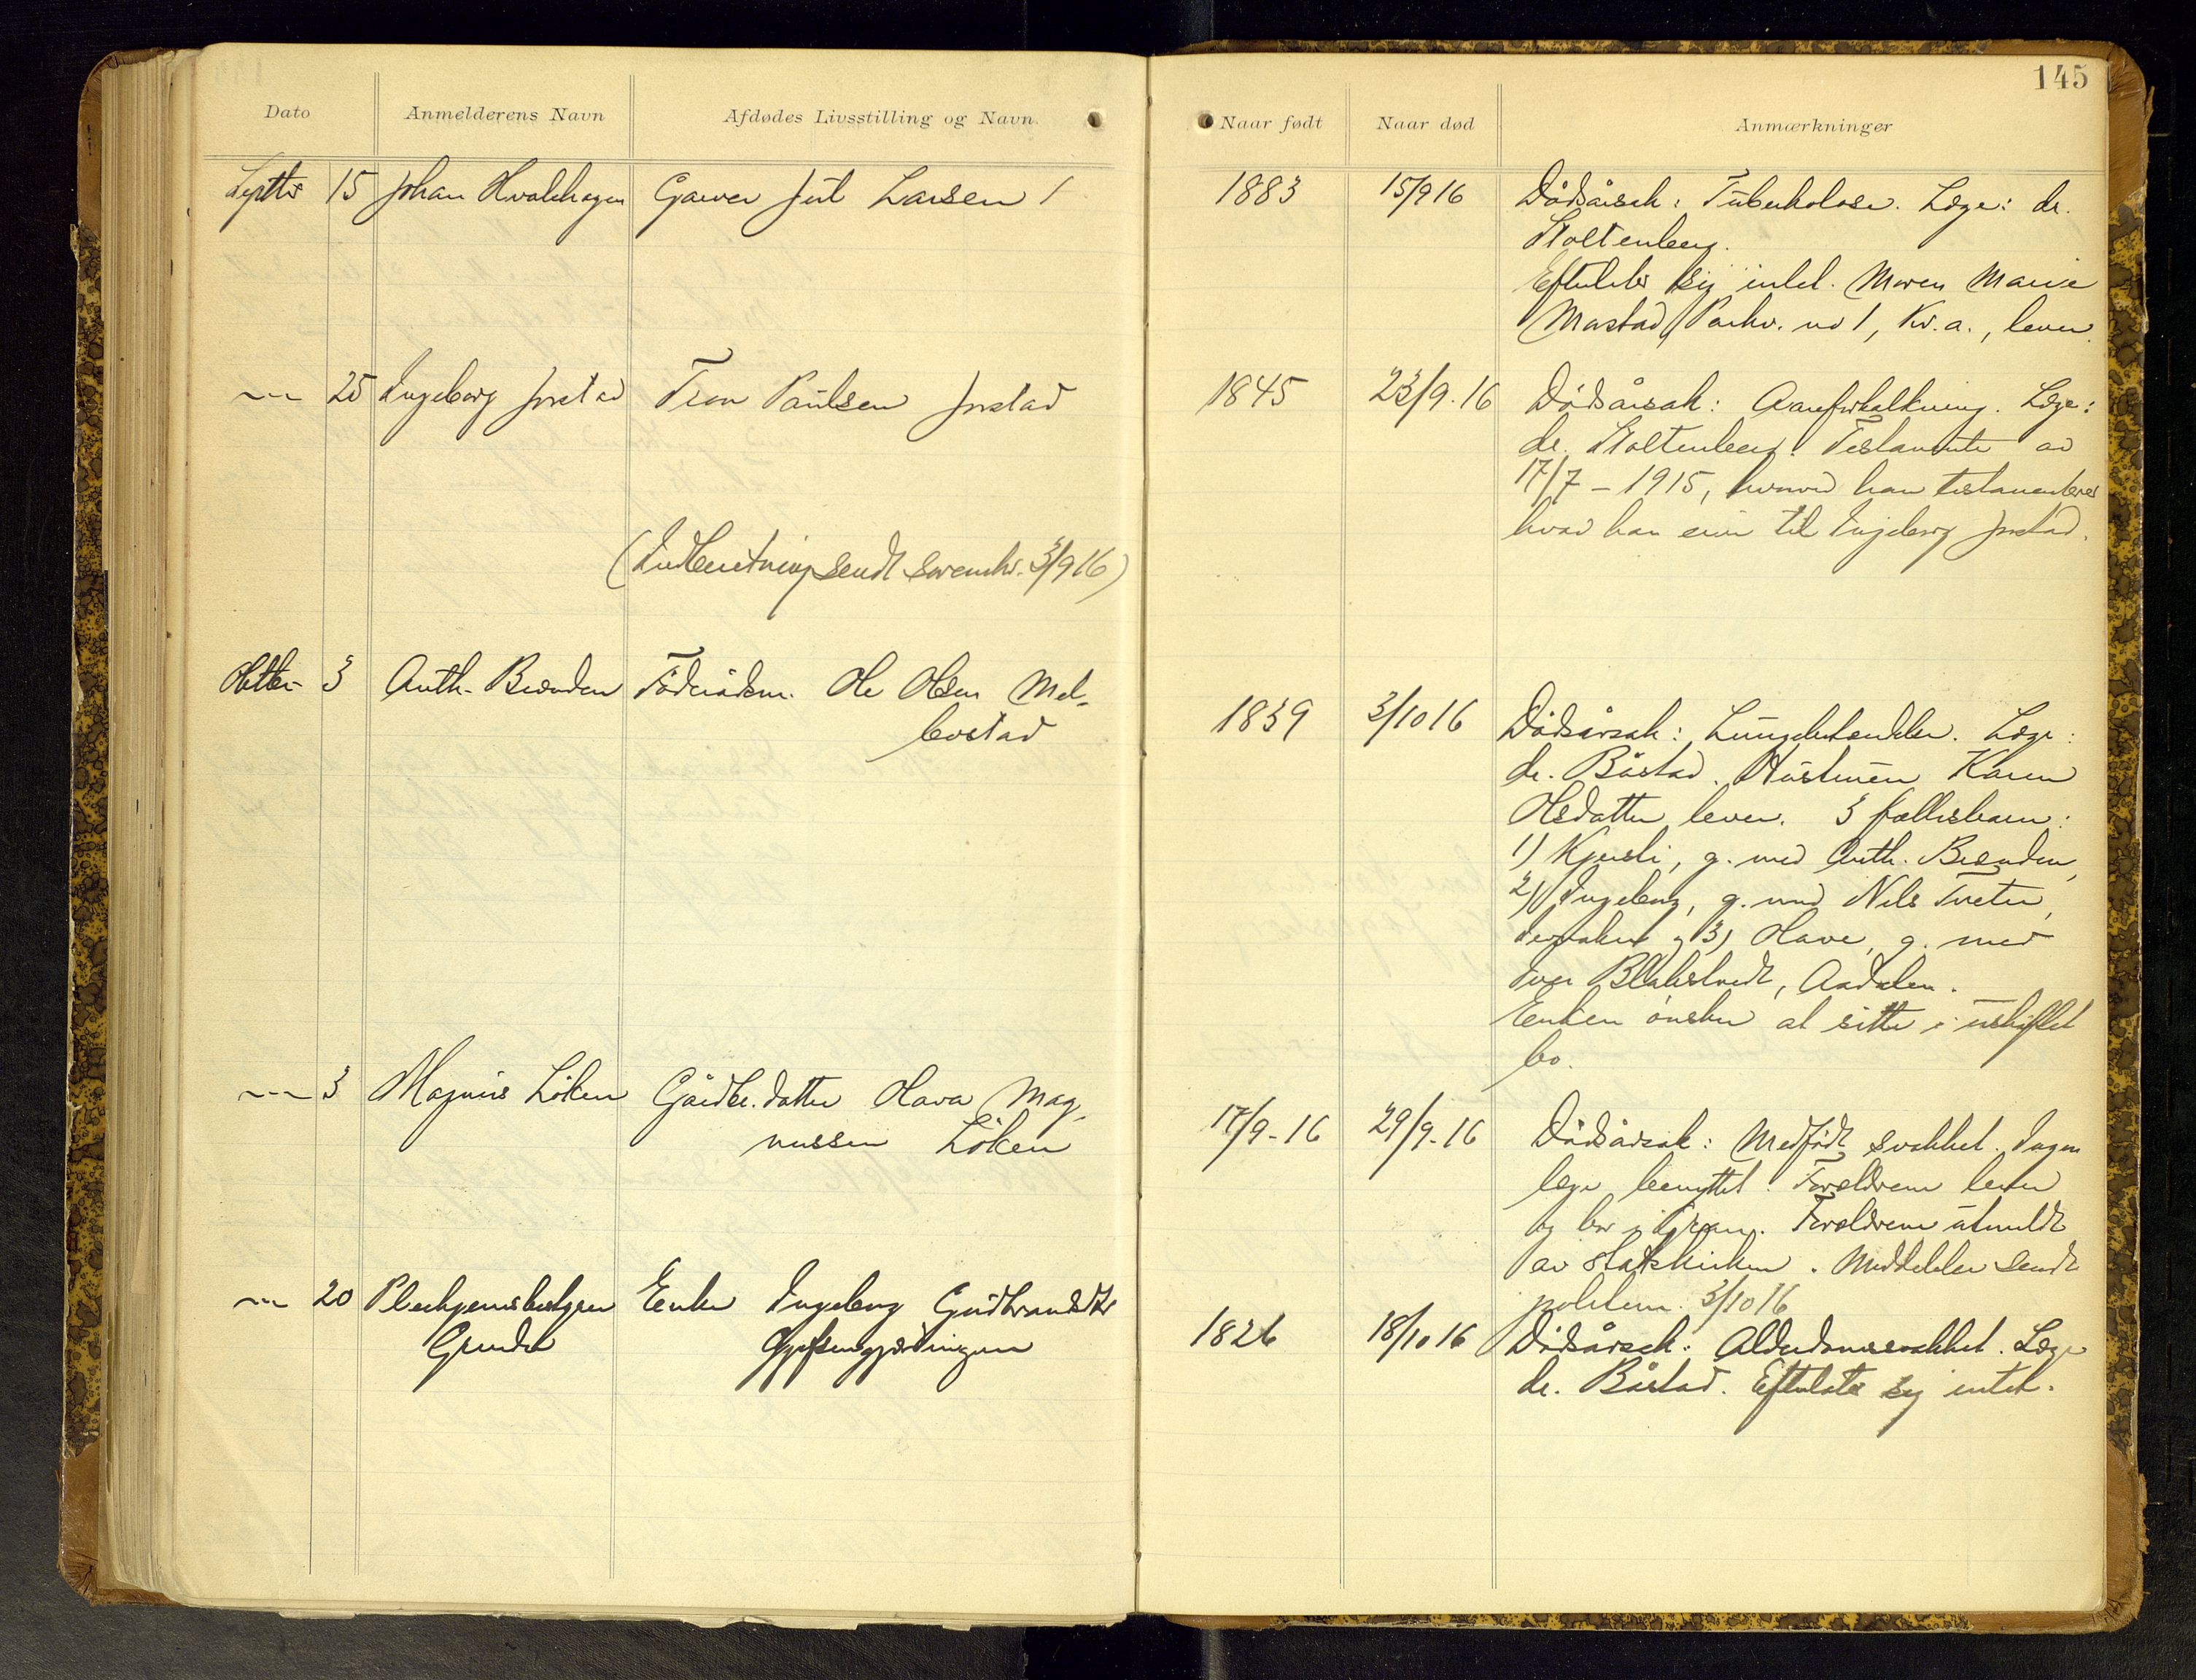 145
Dato
Anmelderens Navn
Afdødes Livsstilling og Navn.
Naar født
Naar død
Anmærkninger
Septbr 15 Johan Hvalehagen Garver Jul Larsen 1 1883 15/9 16 Dødsårsak: Tuberkolose. Læge: dr.
Stoltenberg.
Efterlater sig intet. Moren Marie
Mastad, Parkv. no 1, Kr.a., lever.
25 Ingeborg Jorstad Tron Paulsen Jorstad 1845 23/9.16 Dødsårsak: Aareforkalkning. Læge:
dr. Stoltenberg. Testamente av
17/7 - 1915, hvorved han testamenteres
hvad han eier til Ingeborg Jorstad.
(Indberetning sendt sorenskr. 3/9 16)
Oktbr 3 Anth. Brænden Föderådsm. Ole Olsen Mel-
bostad
1839 3/10 16 Dødsårsak: Lungebetændelse. Læge:
dr. Båstad. Hustruen Karen
Olsdatter lever. 3 fællesbarn:
1) Kjersti, g. med Anth. Brænden,
2) Ingeborg, g. med Nils Tveter,
Jevnaker og 3) Olave, g. med
Iver Blakstvedt, Aadalen.
Enken ønsker at sitte i uskiftet
bo.
3 Magnus Löken Gårdbr. datter Olava Mag-
nussen Löken
17/9-16 29/9-16 Dødsårsak: Medfødt svakhet. Ingen
læge benyttet. Forældrene lever
og bor i Gran. Forældrene utmeldt
av statskirken. Meddelelse sendt
politim. 3/10 16
20 Pleihjemsbestyrer
Grinder
Enke Ingeborg Gudbrandsdtr
1826 18/10 16 Dødsårsak: Alderdomssvakhet. Læge
dr. Båstad. Efterlater sig intet.